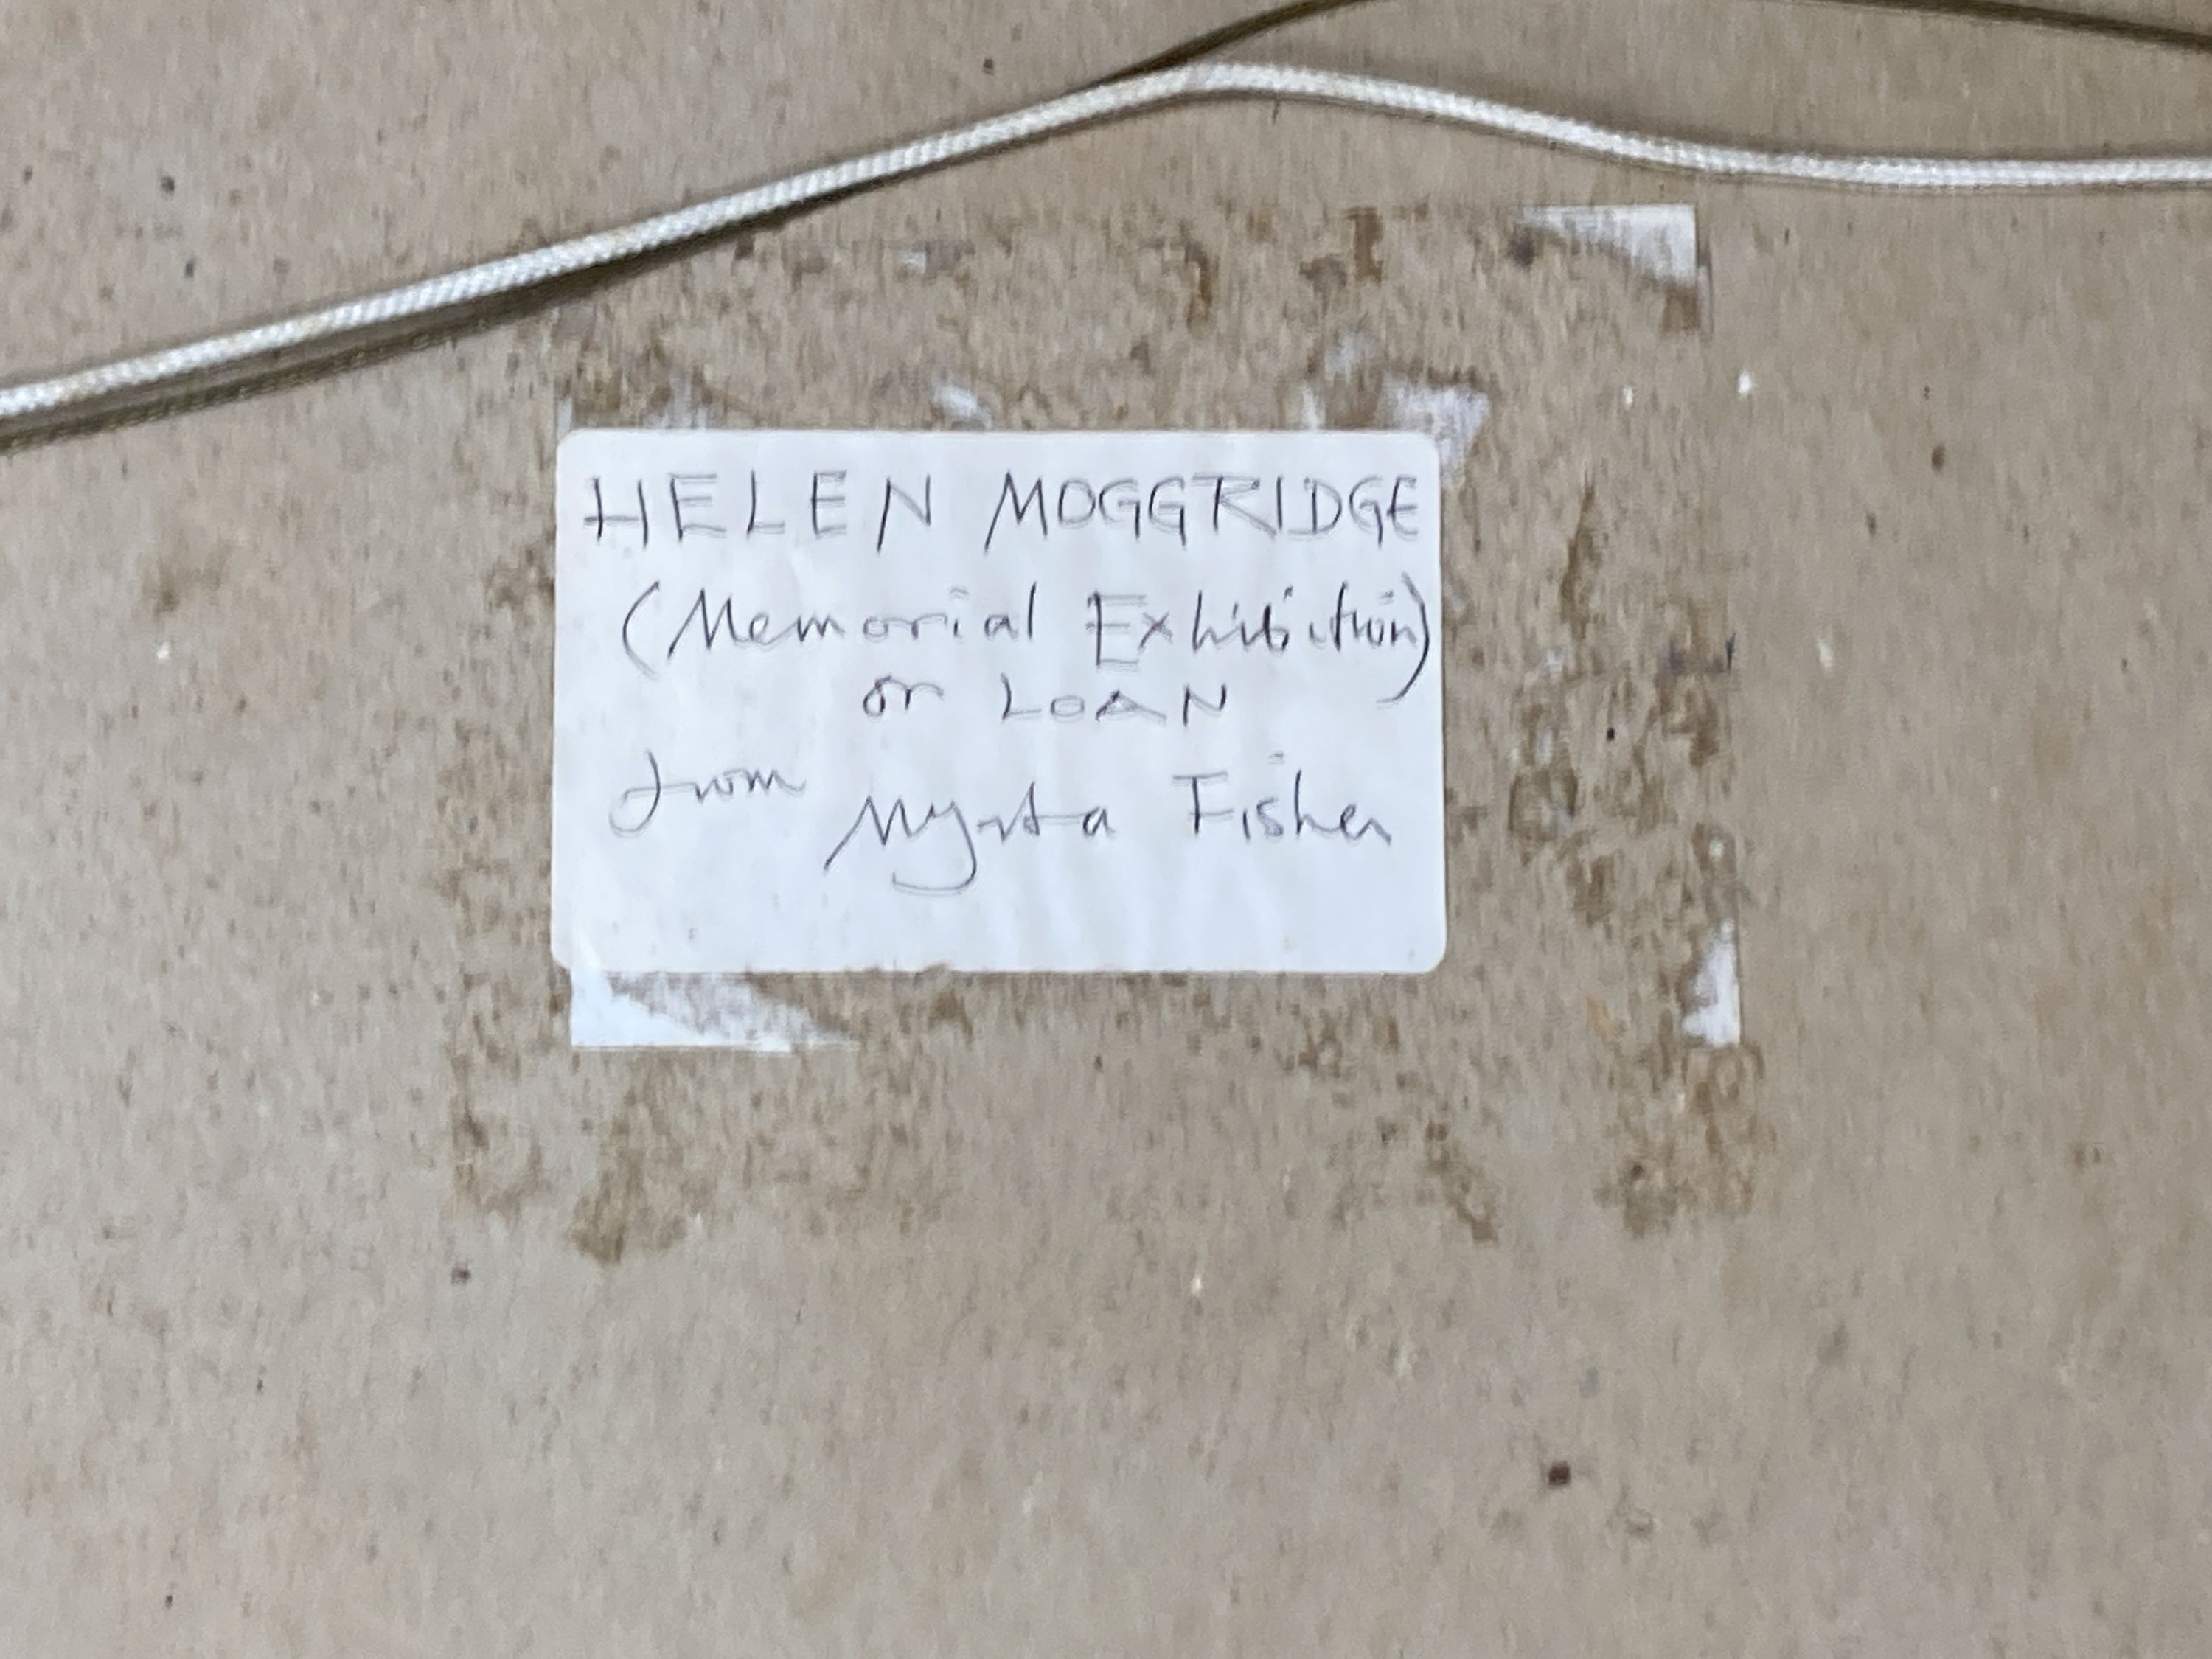 HELEN MOGGRIDGE
(Memorial Exhibition)
on LOAN
from Myrta Fisher